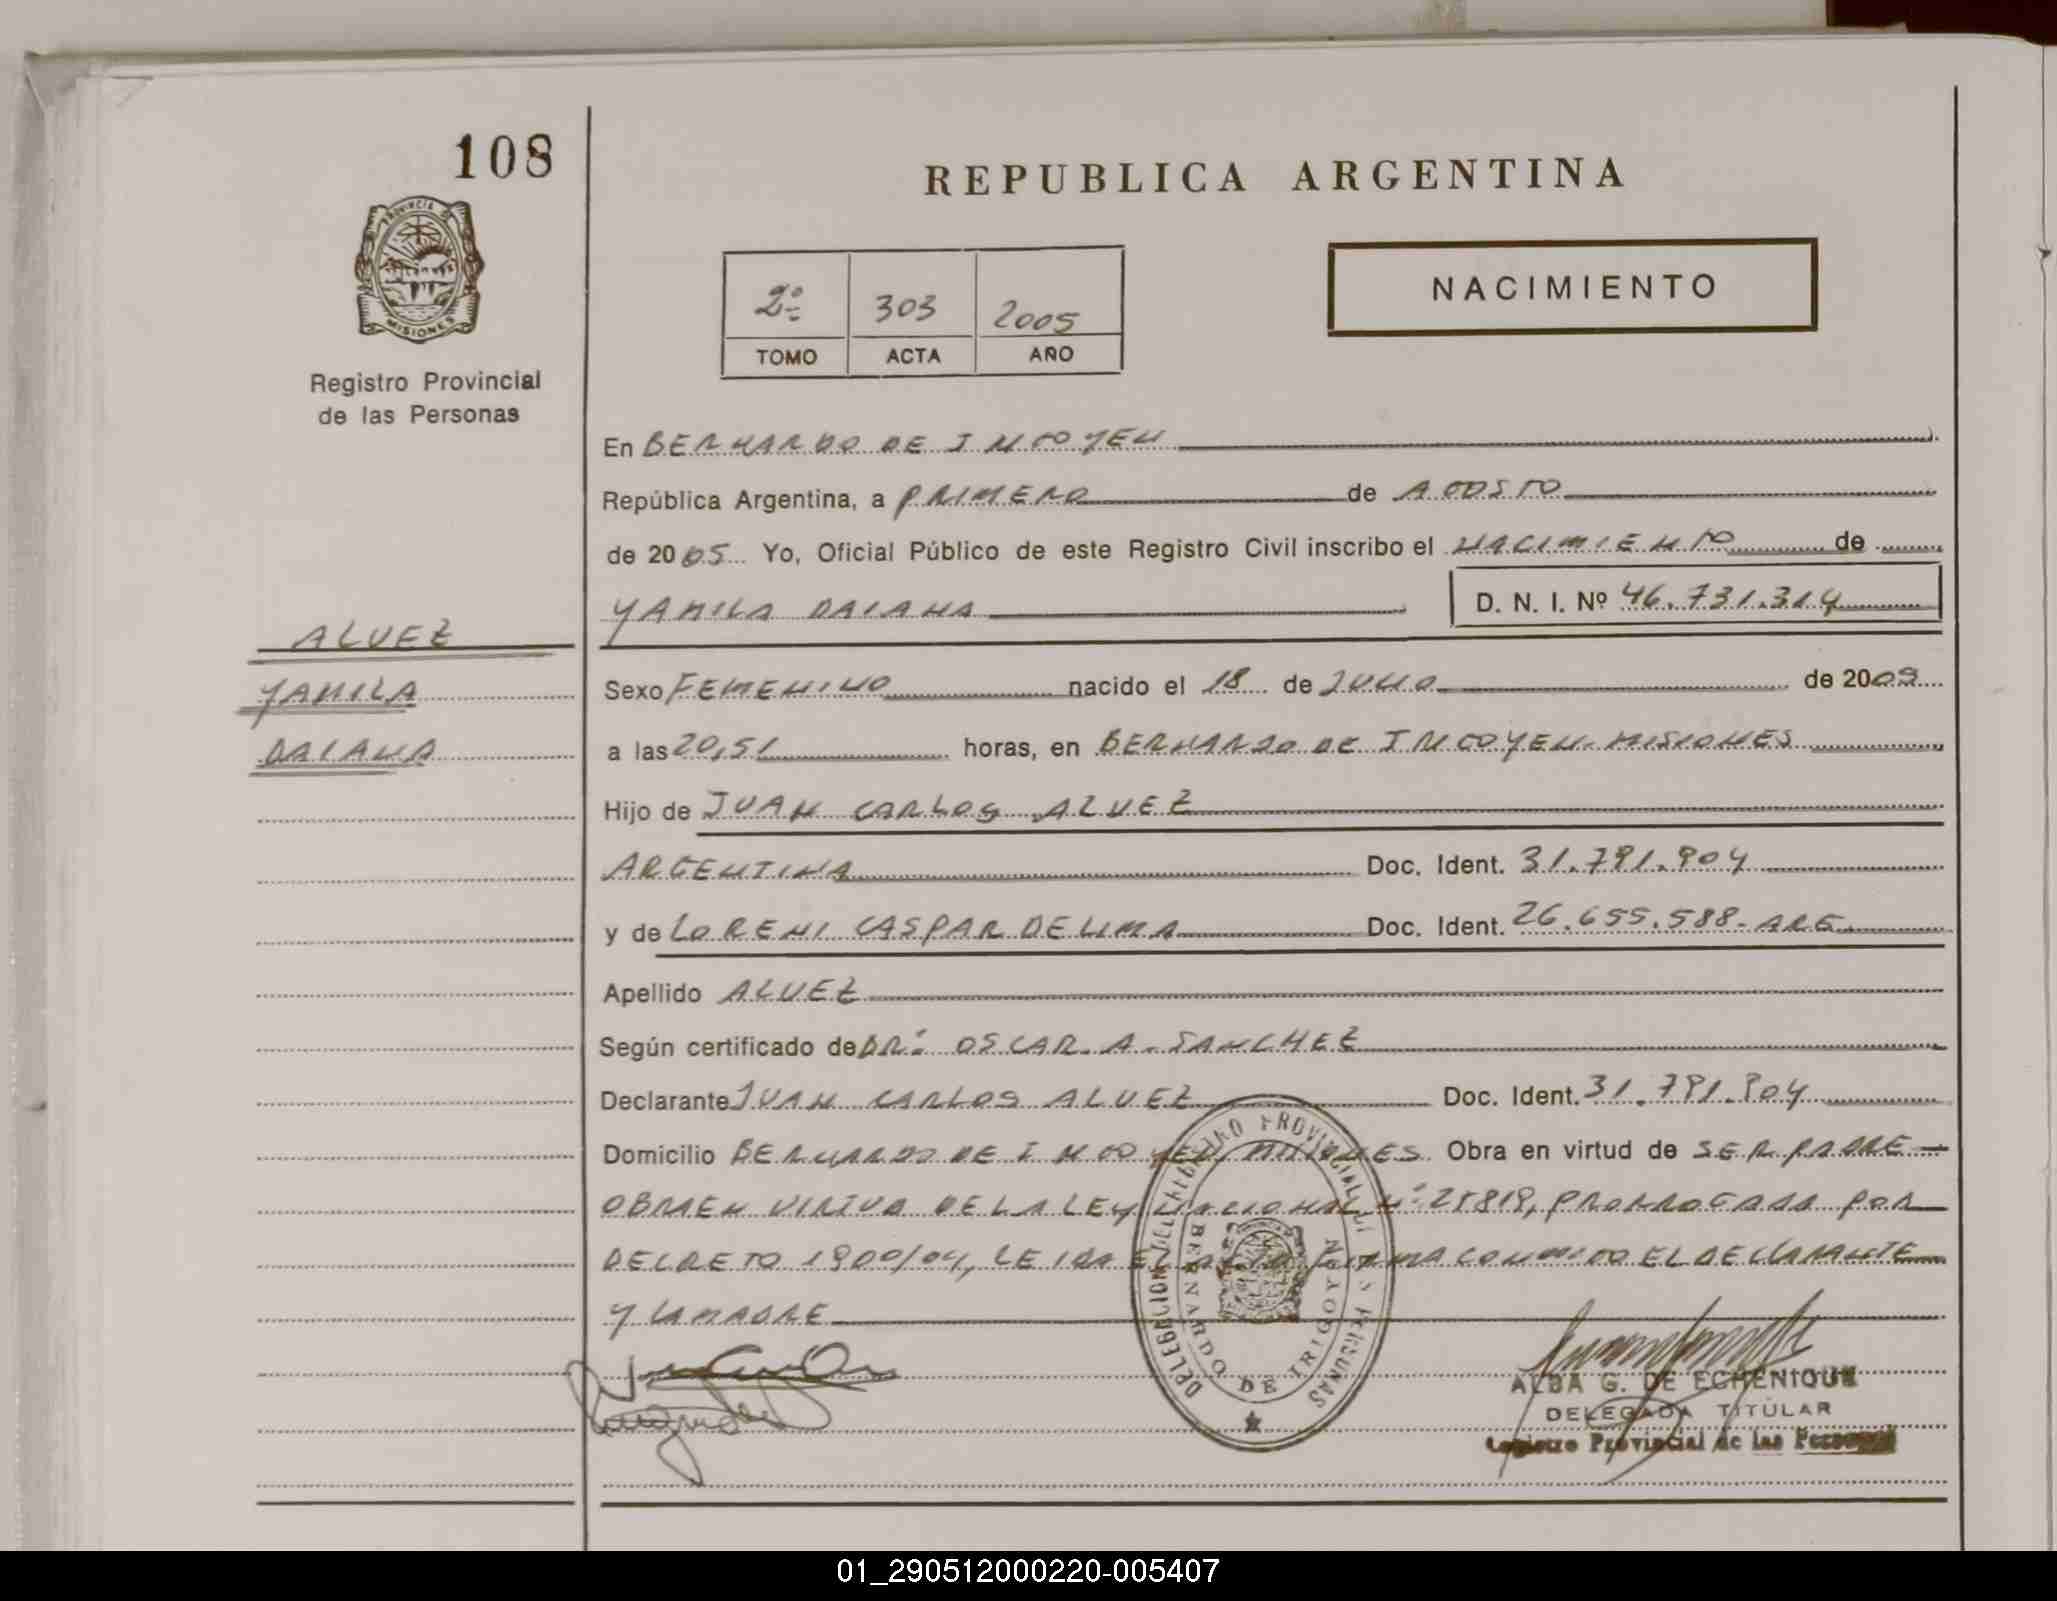 108
PROVINCIA DE
MISIONES
Registro Provincial
de las Personas
REPUBLICA ARGENTINA
2º 303 2005
TOMO ACTA AÑO
NACIMIENTO
En BERNARDO DE IRIGOYEN
República Argentina, a PRIMERO de AGOSTO
de 2005 Yo, Oficial Público de este Registro Civil inscribo el NACIMIENTO de
YAMILA DAIANA D. N. I. Nº 46.731.314
ALVEZ
YAMILA
DAIANA
Sexo FEMENINO nacido el 18 de JULIO de 2005
a las 20,51 horas, en BERNARDO DE IRIGOYEN. MISIONES
Hijo de JUAN CARLOS ALVEZ
ARGENTINA Doc. Ident. 31.791.904
y de LORENI CASPAR DE LIMA Doc. Ident. 26.655.588- ARG
Apellido ALVEZ
Según certificado de DR. OSCAR A. SANCHEZ
Declarante JUAN CARLOS ALVEZ Doc. Ident. 31.791.904
Domicilio BERNARDO DE IRIGOYEN, MISIONES Obra en virtud de SER PADRE
OBRA EN VIRTUD DE LA LEY NACIONAL Nº 25819, PRORROGADA POR
DECRETO 1900/04, LEIDA EL ACTA FIRMA CONMIGO EL DECLARANTE
Y LA MADRE
DELEGACION DEL REGISTRO PROVINCIAL DE LAS PERSONAS
BERNARDO DE IRIGOYEN
ALBA G. DE ECHENIQUE
DELEGADA TITULAR
Registro Provincial de las Personas
01_290512000220-005407